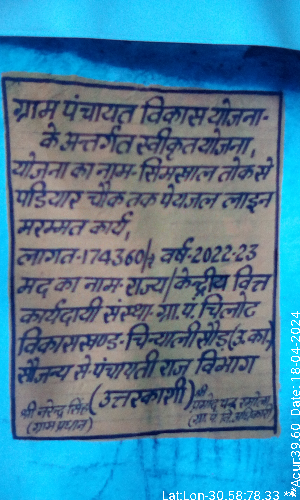 ग्राम पंचायत विकास योजना-
के अन्तर्गत स्वीकृत योजना,
योजना का नाम- सिमसाल तोक से
पडियार चौक तक पेयजल लाइन
मरम्मत कार्य,
लागत-174360/₹ वर्ष-2022-23
मद का नाम- राज्य/केन्द्रीय वित्त
कार्यदायी संस्था- ग्रा.पं. चिलोट
विकासखण्ड- चिन्यालीसौड़ (उ.का.)
सौजन्य से- पंचायती राज विभाग
(उत्तरकाशी)
श्री नरेन्द्र सिंह
(ग्राम प्रधान)
श्री
(ग्रा. पं. वि. अधिकारी)
LatLon-30.58:78.33
**Acur39.60 Date:18-04-2024